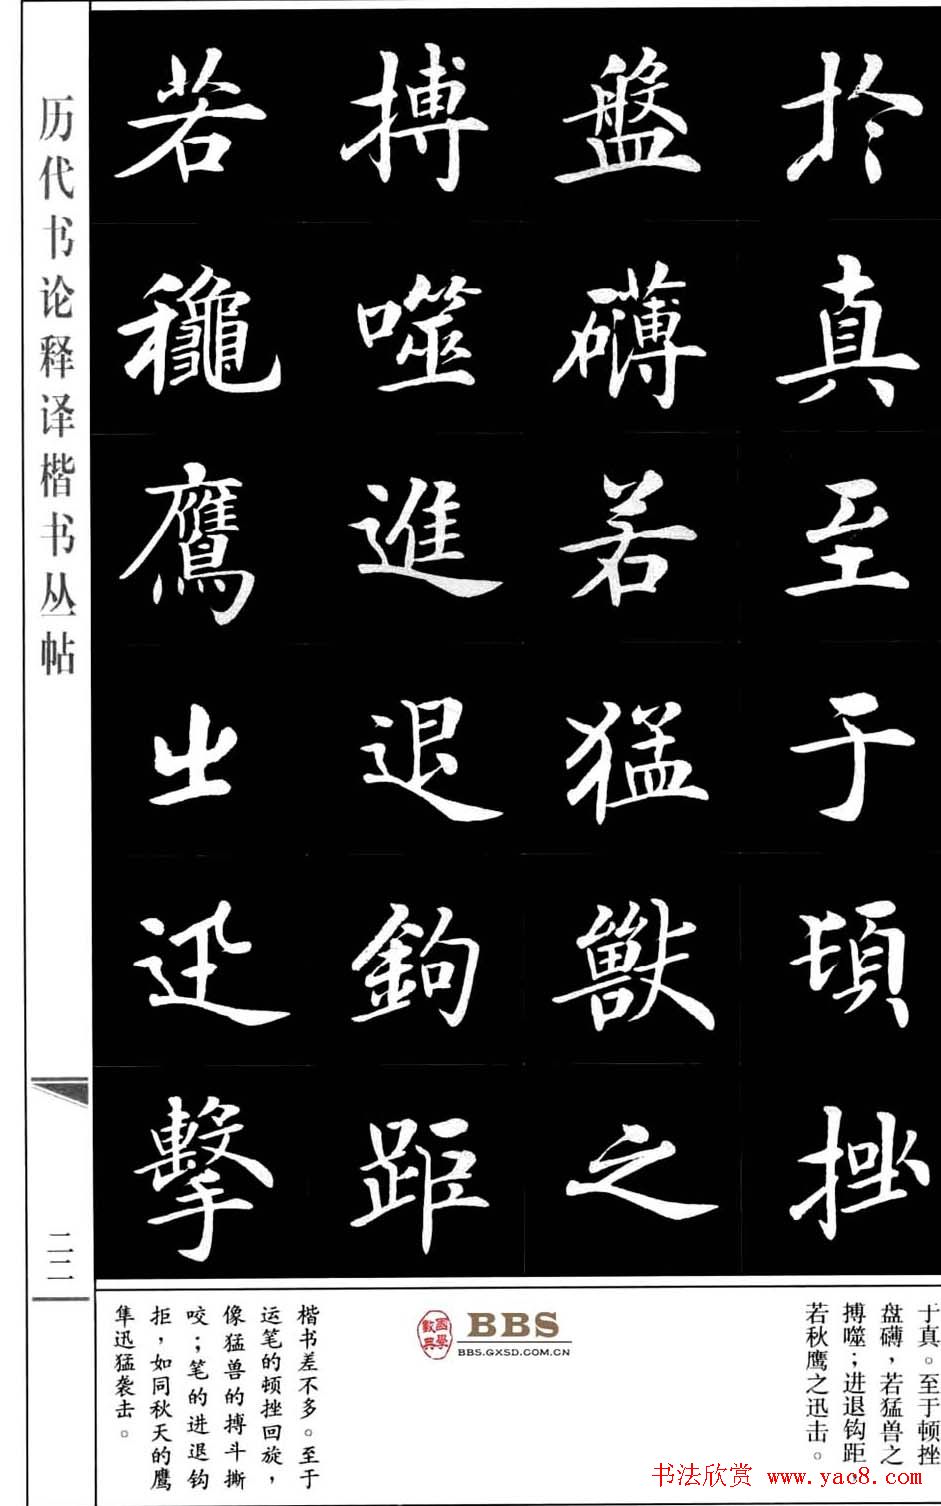 扵真至于頓挫
盤礴若猛獸之
搏噬進退鉤距
若龝鷹㞢迅擊
历代书论释译楷书丛帖
二二
于真。至于顿挫
盘礴，若猛兽之
搏噬；进退钩距
若秋鹰之迅击。
國學數典
BBS
BBS.GXSD.COM.CN
楷书差不多。至于
运笔的顿挫回旋，
像猛兽的搏斗撕
咬；笔的进退钩
拒，如同秋天的鹰
隼迅猛袭击。
书法欣赏 www.yac8.com